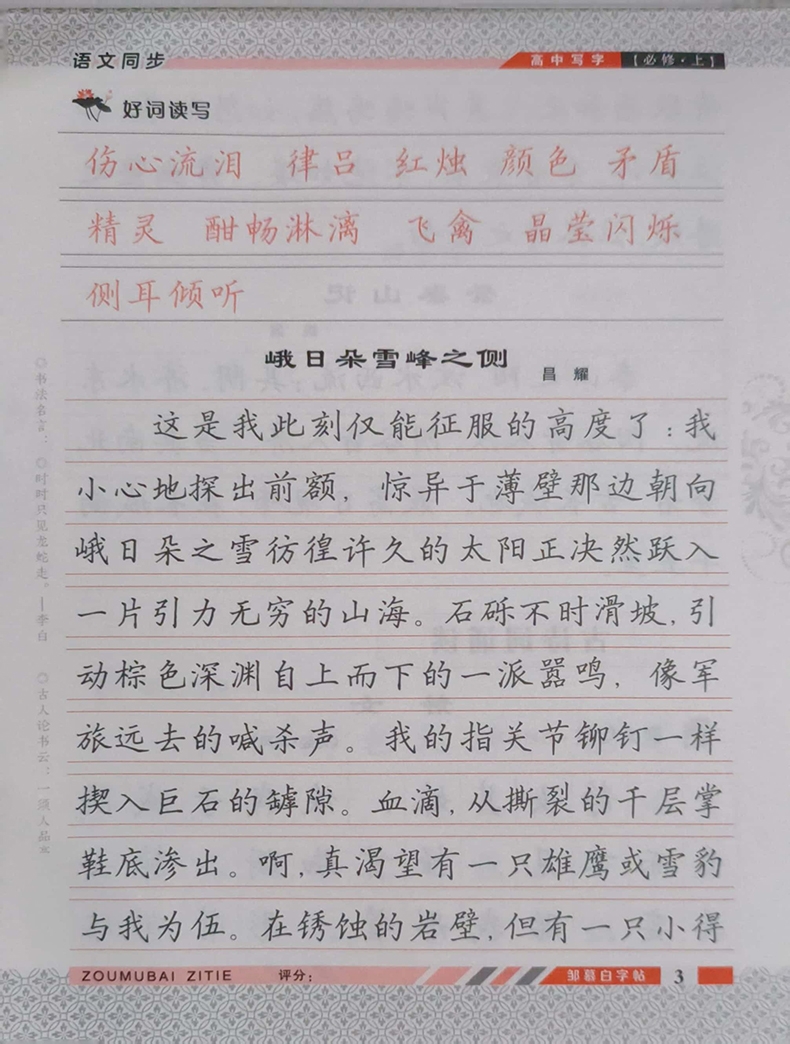 语文同步
高中写字 【必修·上】
好词读写
伤心流泪 律吕 红烛 颜色 矛盾
精灵 酣畅淋漓 飞禽 晶莹闪烁
侧耳倾听
峨日朵雪峰之侧
昌耀
这是我此刻仅能征服的高度了:我
小心地探出前额,惊异于薄壁那边朝向
峨日朵之雪彷徨许久的太阳正决然跃入
一片引力无穷的山海。石砾不时滑坡,引
动棕色深渊自上而下的一派嚣鸣,像军
旅远去的喊杀声。我的指关节铆钉一样
揳入巨石的罅隙。血滴,从撕裂的千层掌
鞋底渗出。啊,真渴望有一只雄鹰或雪豹
与我为伍。在锈蚀的岩壁,但有一只小得
◎书法名言:◎时时只见龙蛇走。—李白 ◎古人论书云:一须人品
ZOUMUBAI ZITIE 评分:
邹慕白字帖 3